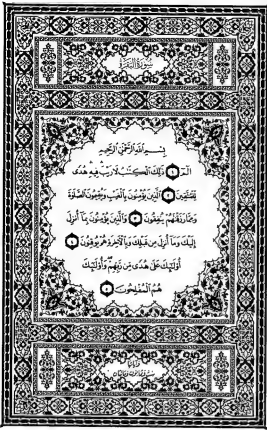 سُورَةُ الْبَقَرَةِ
بِسْمِ اللَّهِ الرَّحْمَٰنِ الرَّحِيمِ
الٓمٓ ١ ذَٰلِكَ الْكِتَٰبُ لَا رَيْبَ فِيهِ هُدًى
لِّلْمُتَّقِينَ ٢ الَّذِينَ يُؤْمِنُونَ بِالْغَيْبِ وَيُقِيمُونَ الصَّلَوٰةَ
وَمِمَّا رَزَقْنَٰهُمْ يُنفِقُونَ ٣ وَالَّذِينَ يُؤْمِنُونَ بِمَا أُنزِلَ
إِلَيْكَ وَمَا أُنزِلَ مِن قَبْلِكَ وَبِالْآخِرَةِ هُمْ يُوقِنُونَ ٤
أُولَٰئِكَ عَلَىٰ هُدًى مِّن رَّبِّهِمْ وَأُولَٰئِكَ
هُمُ الْمُفْلِحُونَ ٥